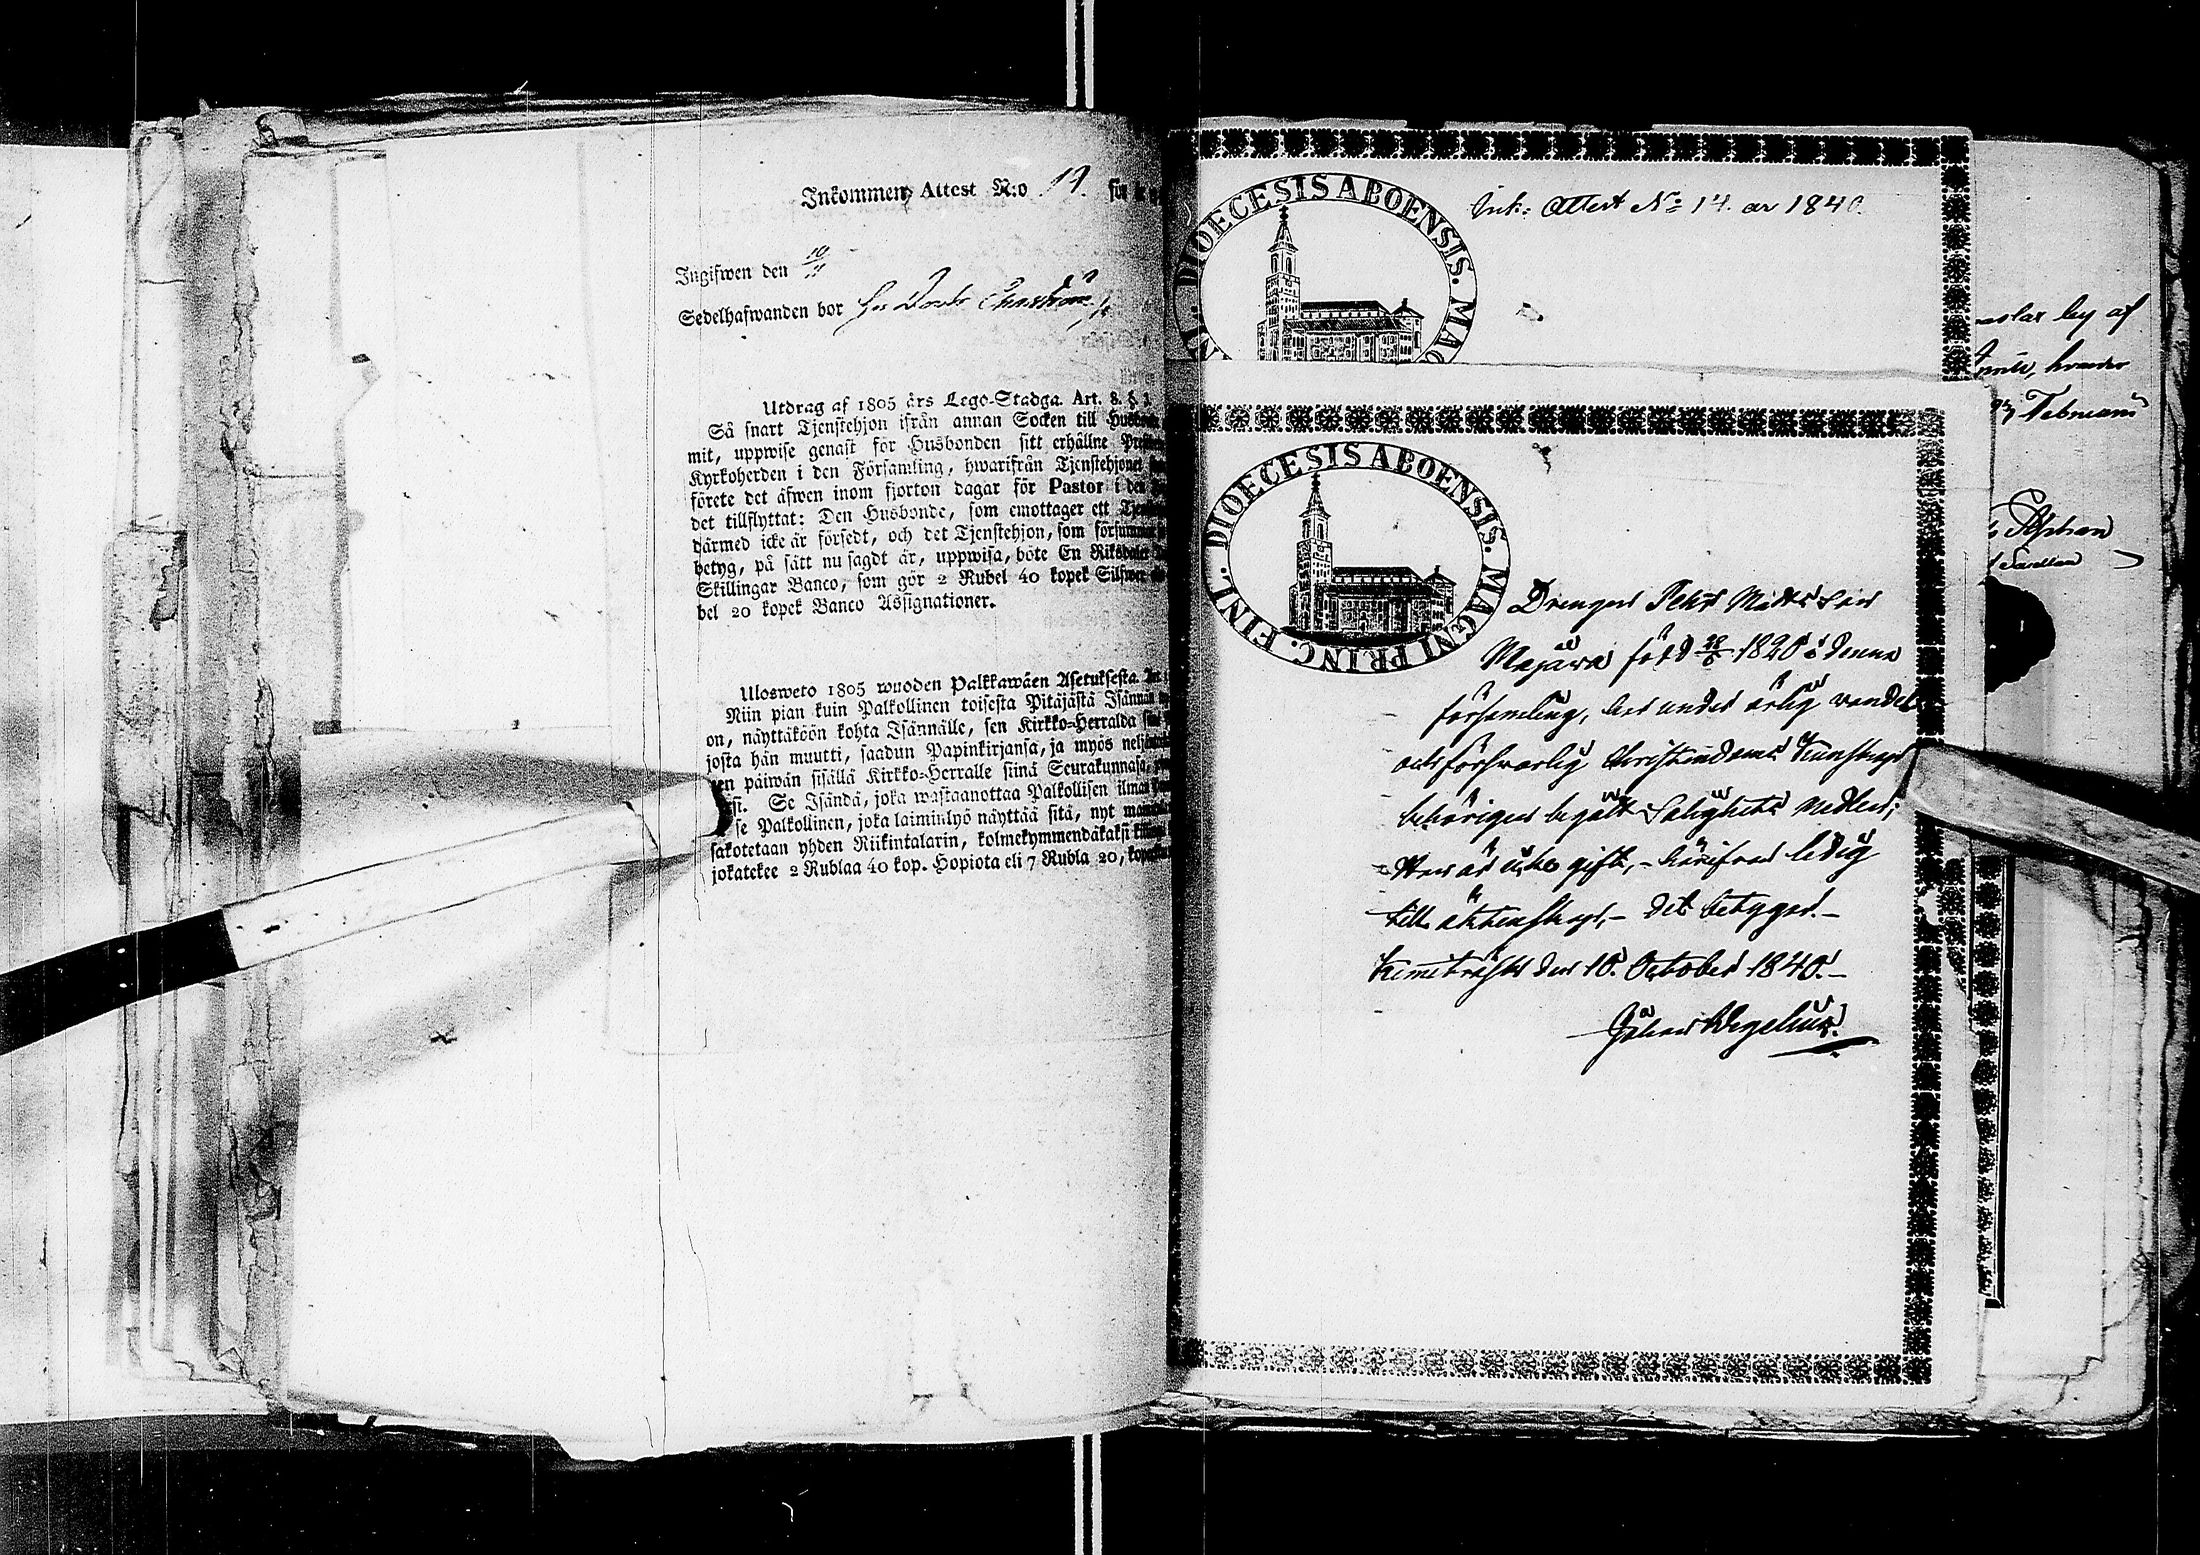 Inkommen Attest N:o 19. för
Ingifwen den 10/11
Sedelhafwanden bor hos
Utdrag af 1805 års Lego-Stadga. Art. 8. §. 3.
Så snart Tjenstehjon ifrån annan Socken till
mit, uppwise genast för Husbonden sitt erhållne
Kyrkoherden i den Församling, hwarifrån Tjenstehjonet
förete det äfwen inom fjorton dagar för Pastor i den
det tillflyttat: Den Husbonde, som emottager ett
därmed icke är försedt, och det Tjenstehjon, som försummar
betyg, på sätt nu sagdt är, uppwisa, böte En Riksdaler
Skillingar Banco, som gör 2 Rubel 40 kopek Silfwer
bel 20 kopek Banco Assignationer.
Ulosweto 1805 wuoden Palkkawäen Asetuksesta.
Niin pian kuin Palkollinen toisesta Pitäjästä Isännän
on, näyttäköön kohta Isännälle, sen Kirkko-Herralda
josta hän muutti, saadun Papinkirjansa, ja myös
päiwän sisällä Kirkko-Herralle siinä Seurakunnasa,
Se Isändä, joka wastaanottaa Palkollisen ilman
se Palkollinen, joka laiminlyö näyttää sitä, nyt
sakotetaan yhden Riikintalarin, kolmekymmendäkaksi
jokatekee 2 Rublaa 40 kop. Hopiota eli 7 Rubla 20,
DIOECESIS ABOENSIS. MAG
Ink: Attest No 14. ar 1840.
DIOECESIS ABOENSIS. MAGNI PRINC. FINL.
Drengen Pehr Matts Son
Majawa född 28/6 1820 i denna
församling, har under ärlig wandel
och förswarlig Christendoms Kunskap
behörigen begått Salighets medlen;
Han är icke gift, - härifrån ledig
till äktenskap, - det betygar. -
Kemiträsk den 10. October 1840. -
Johan Wegelius.
by af
hvarder
Februarii